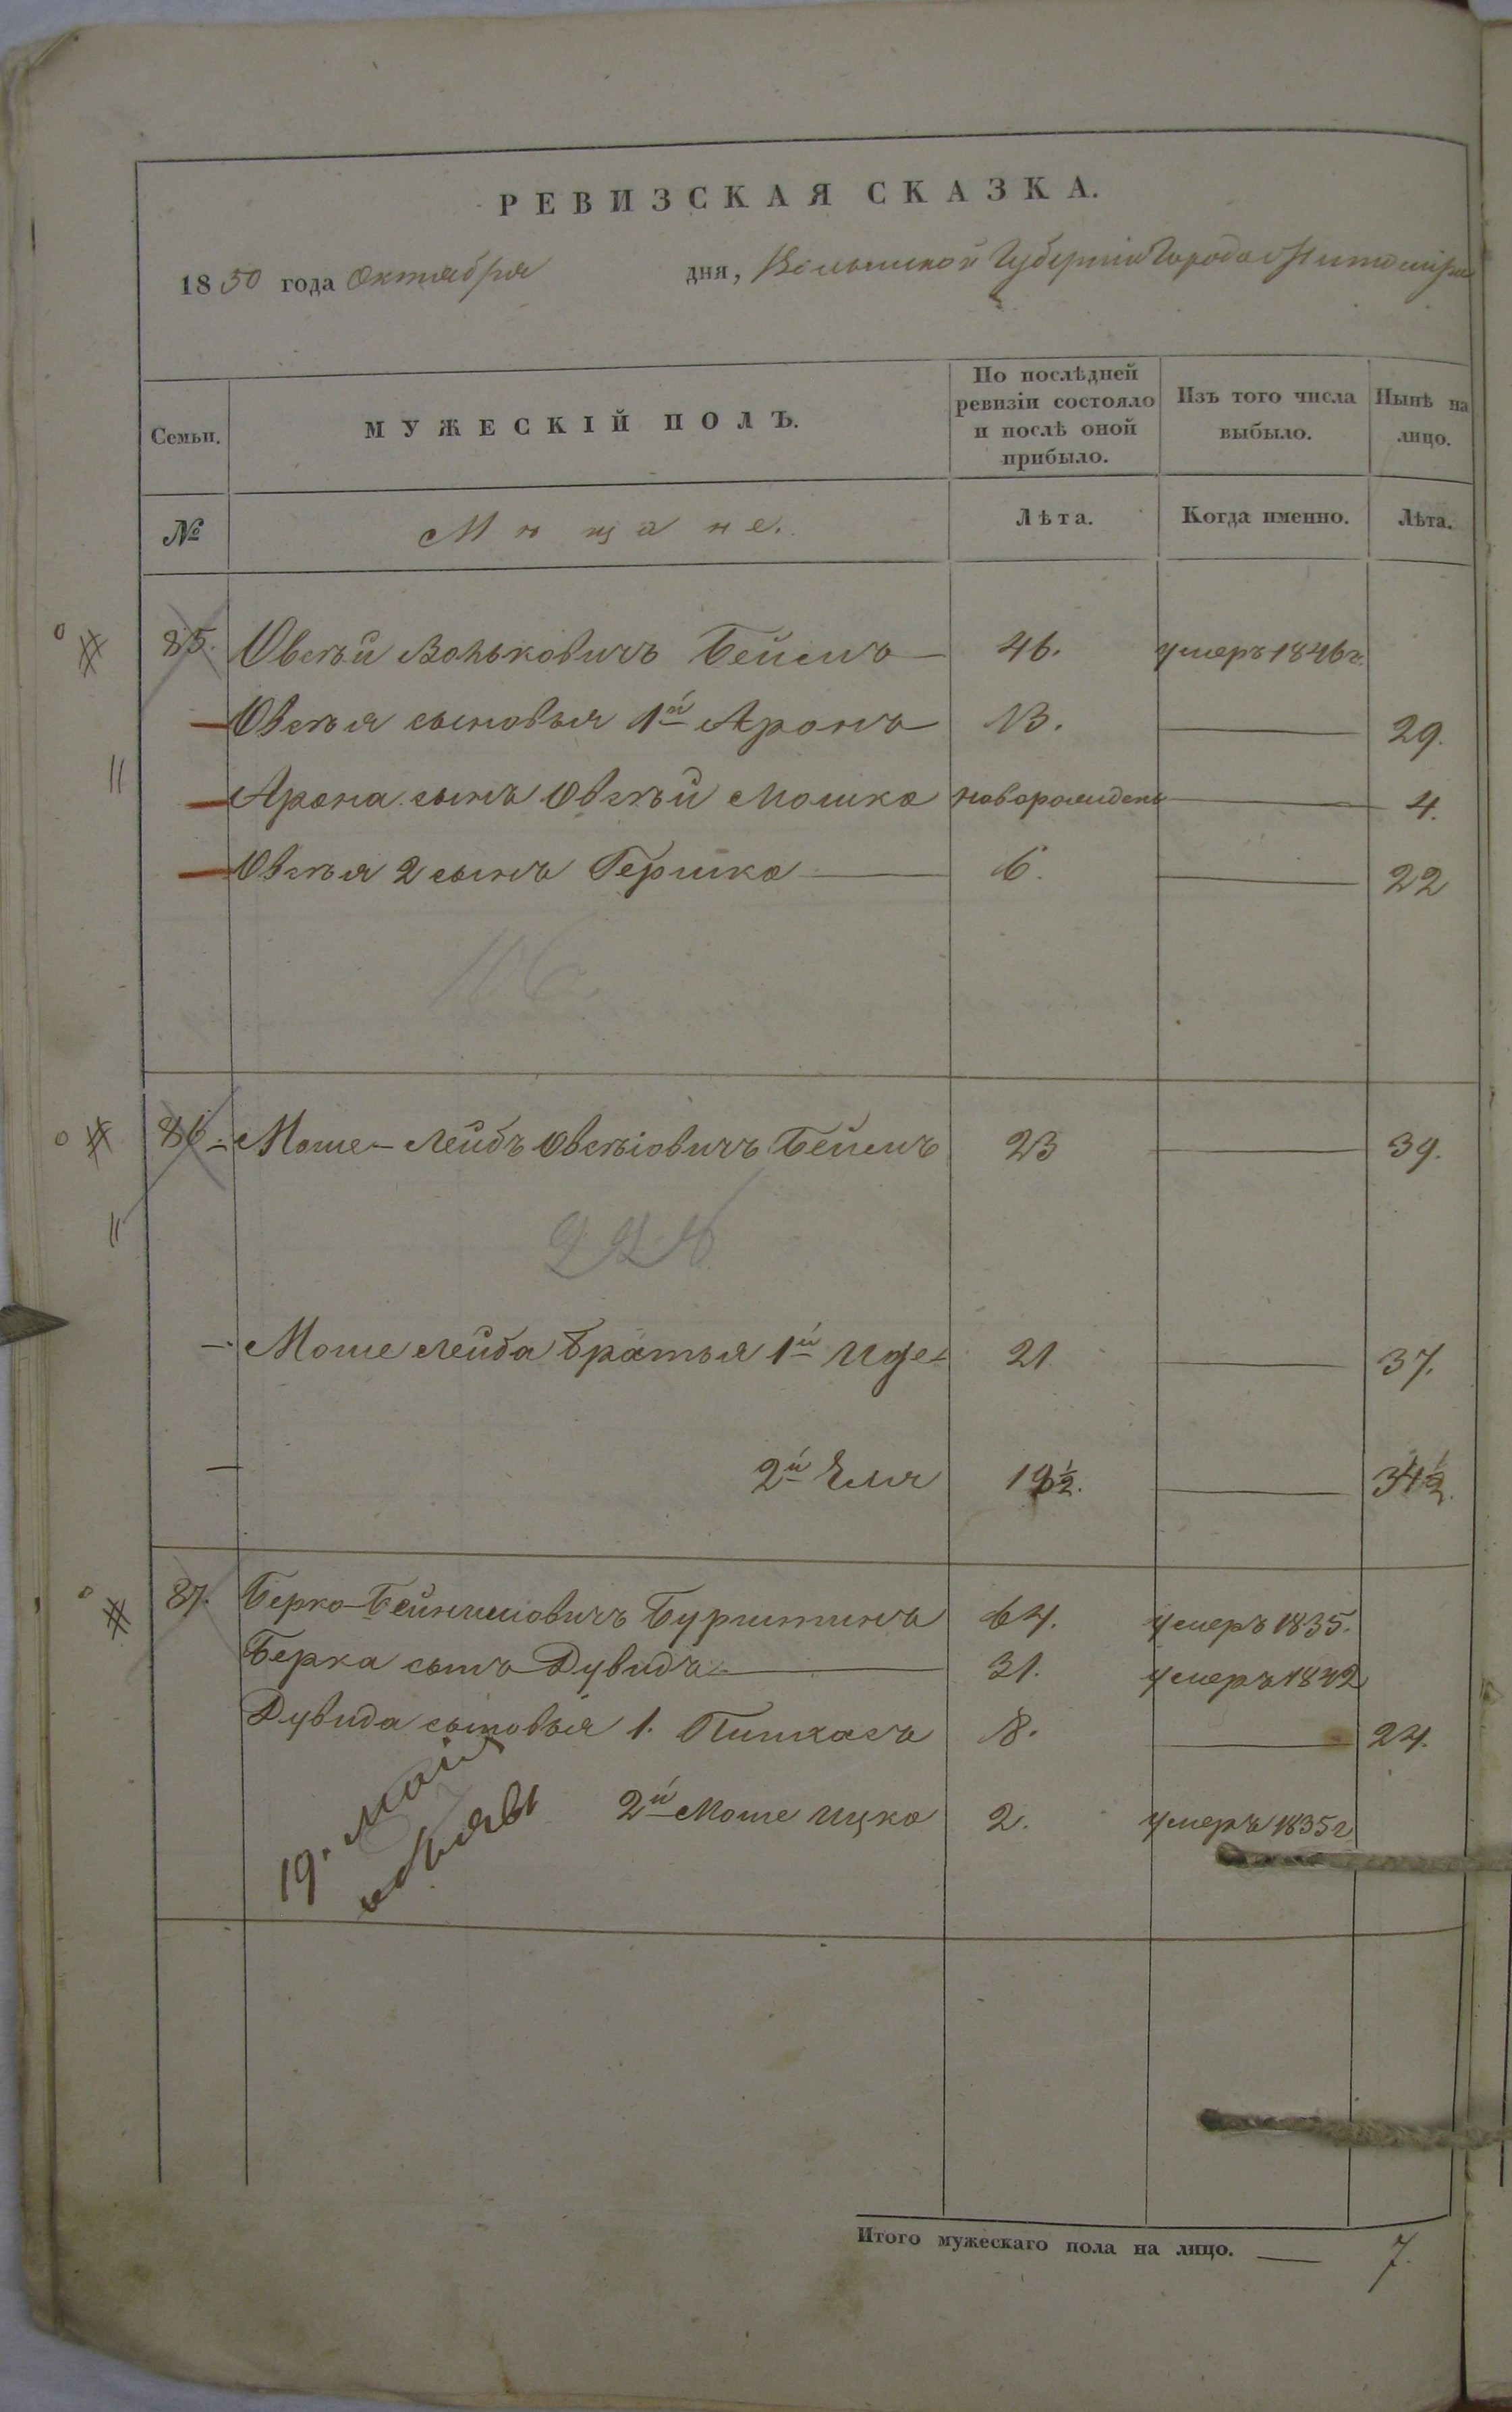 РЕВИЗСКАЯ СКАЗКА.
1850 года Октября дня, Волынской Губерніи Города Житоміра
Семьи. МУЖЕСКІЙ ПОЛЪ. По послѣдней ревизіи состояло и послѣ оной прибыло. Изъ того числа выбыло. Нынѣ на лицо.
№ Мѣщане. Лѣта. Когда именно. Лѣта.
85. Овсѣй Вольковичъ Бейемъ 46. умеръ 1846 г.
Овсѣя сыновья 1й Аронъ 13. 29.
Арона сынъ Овсѣй Мошко новорожденъ 4.
Овсѣя 2 сынъ Гершко 6. 22
86. Моше-Лейбъ Овсѣіовичъ Бейемъ 23 39.
Моше Лейба братья 1й 21 37.
2й Еля 19½. 34½.
87. Берко Бурштинъ 64. умеръ 1835.
Берка сынъ Дувидъ 31. умеръ 1842
Дувида сыновья 1. Пинхасъ 8. 24.
2й Моше Ицко 2. умеръ 1835 г
19.
Итого мужескаго пола на лицо. 7.